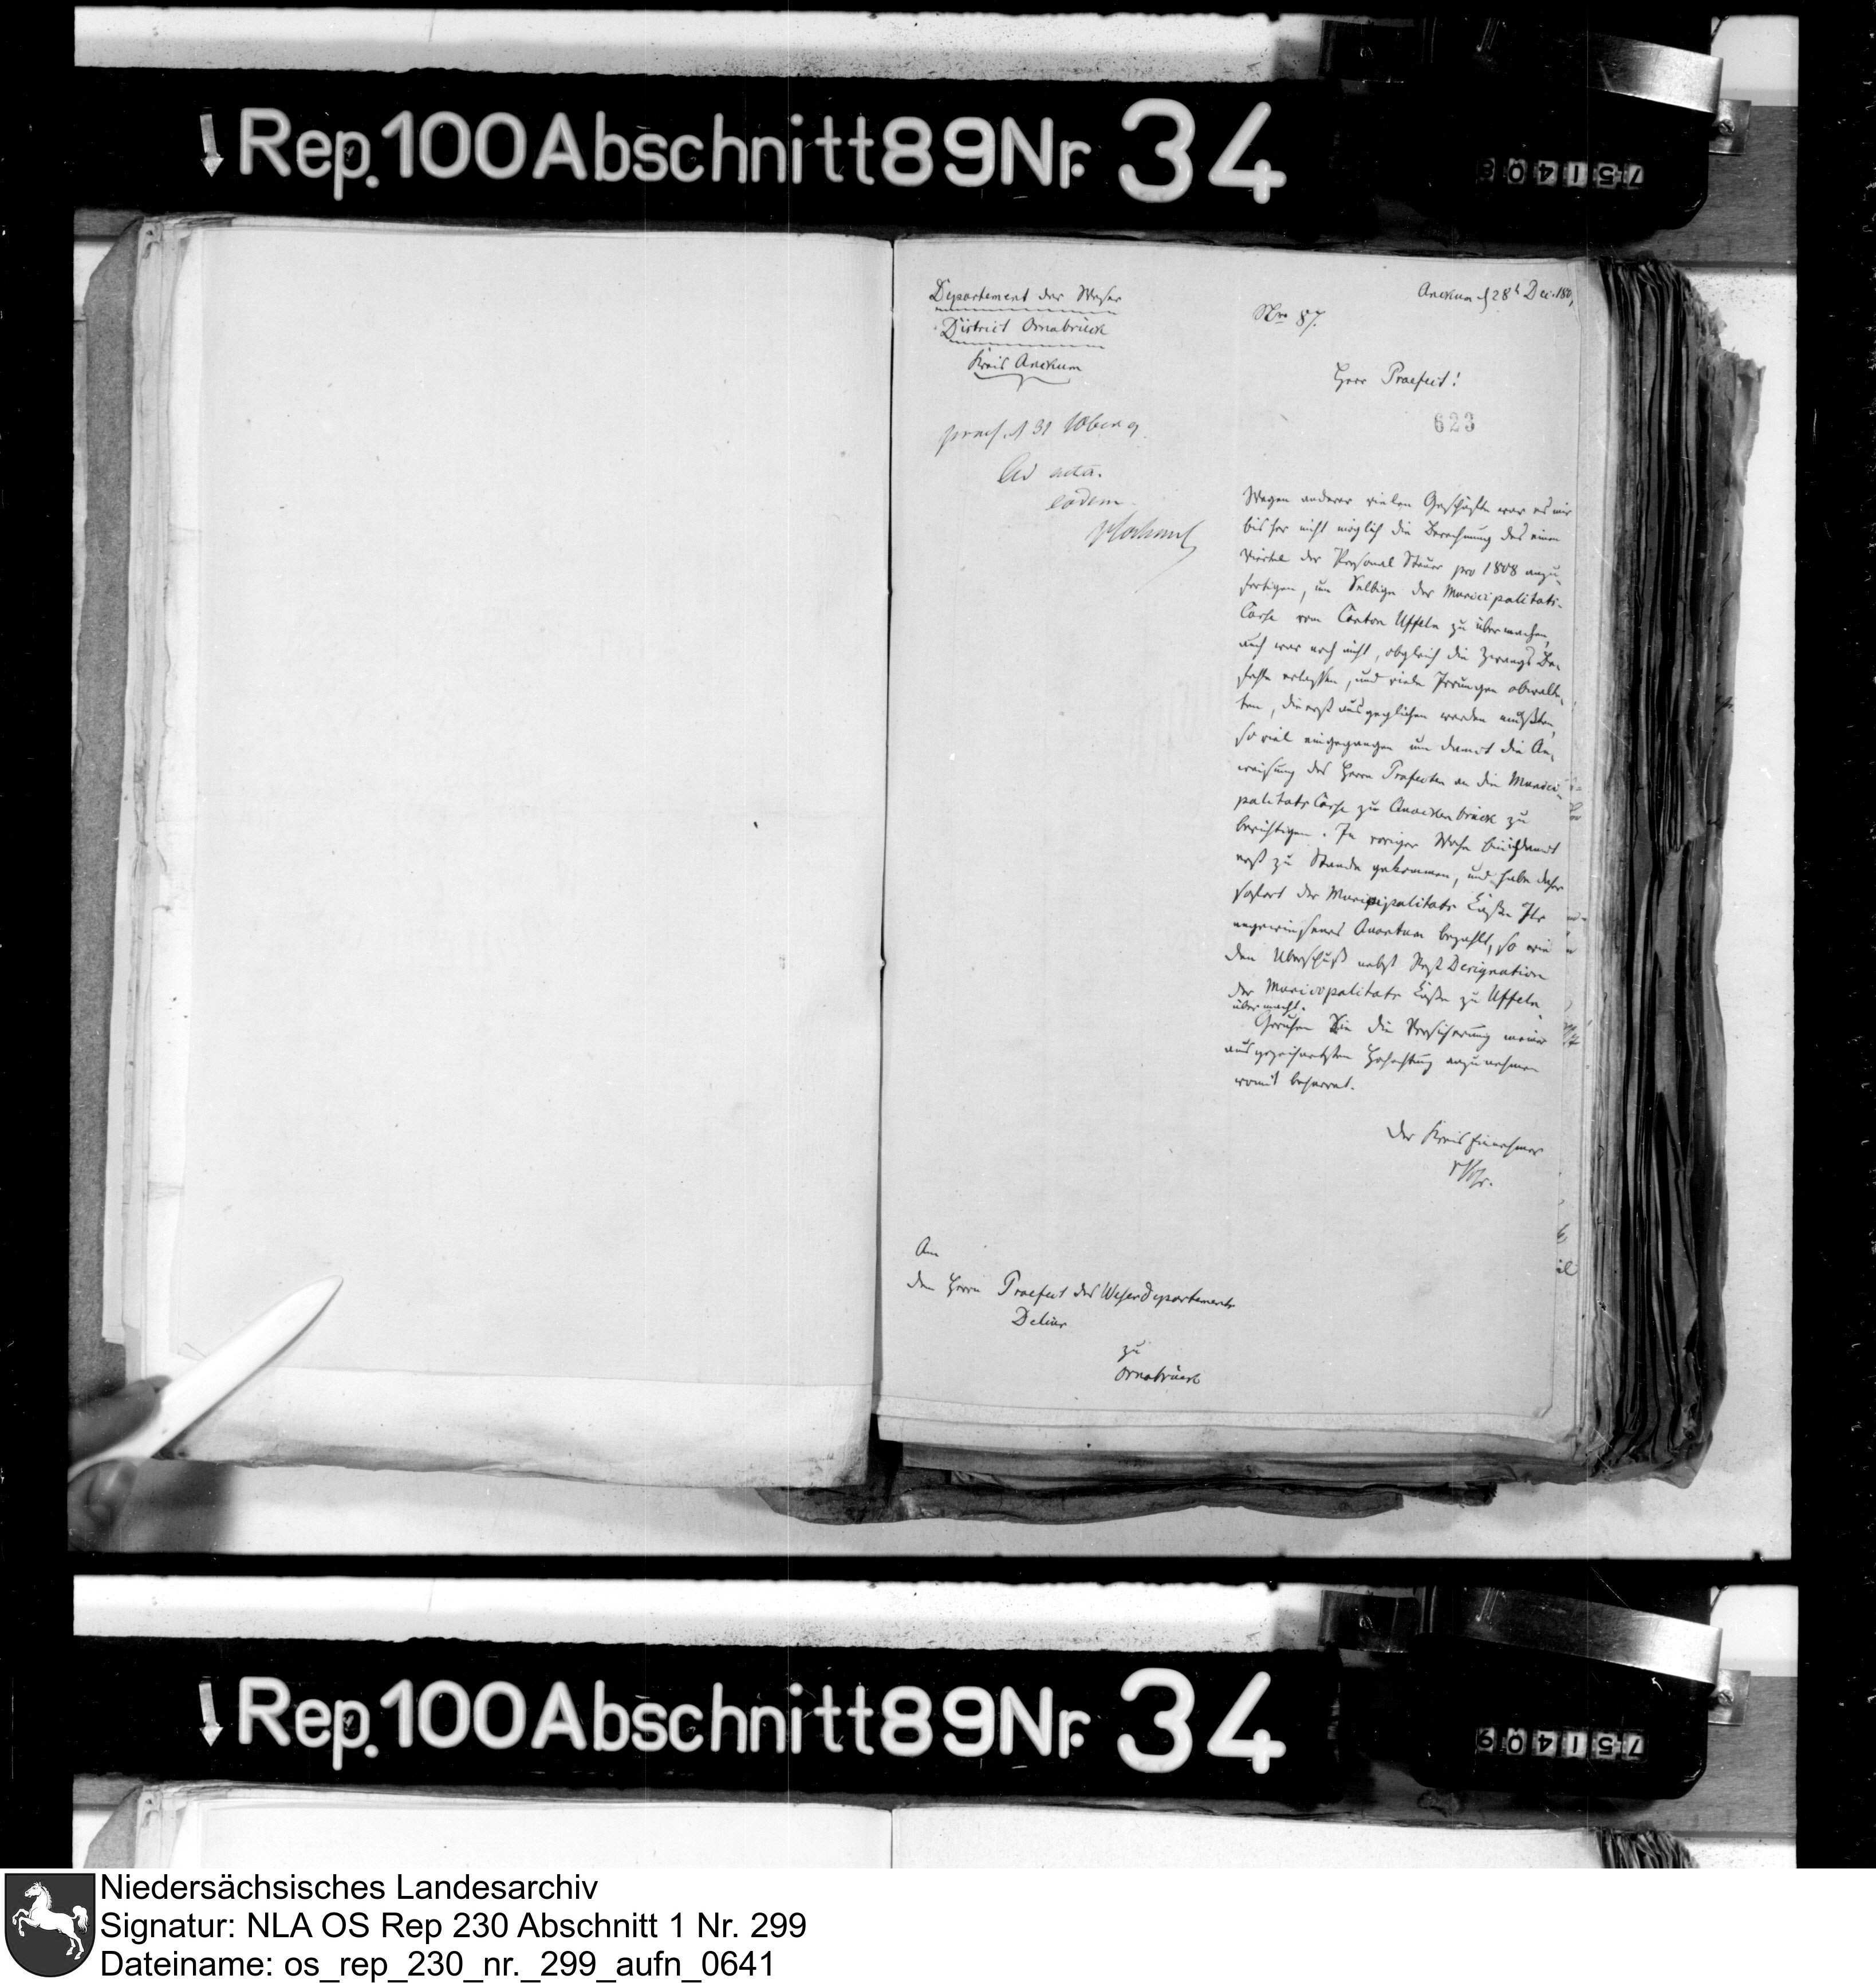 Rep. 100 Abschnitt 89 Nr. 34
Departement der Weser
District Osnabrück
Kreis Anckum
Anckum d 28t Dec. 180
Nro 87.
Herr Praefect!
623
praes. d 31 Xber 9
Ad acta.
eodem.
Wegen anderer vielen Geschäfte war es mir
bisher nicht möglich die Berechnung des einen
Viertel der Personal Steuer pro 1808 anzu-
fertigen, um Selbige der Municipalitats-
Casse vom Canton Uffeln zu übermachen,
auch war noch nicht, obgleich die Zwangs Be-
fehle erlassen, und viele Irrungen obwalte-
ten, die erst ausgeglichen werden mußten,
so viel eingegangen um damit die An-
weisung des Herrn Präfecten an die Munici-
palitats Casse zu Quackenbrück zu
berichtigen. In voriger Woche bin ich damit
erst zu Stande gekommen, und habe daher
sofort der Municipalitats Casse Ihr
angewiesenes Quantum bezahlt, so wie
den Uberschuß nebst Rest Designation
der Municipalitats Casse zu Uffeln
übermacht.
Geruhen Sie die Versicherung meiner
ausgezeichnetsten Hochachtung anzunehmen
womit beharret.
Der Kreis Einnehmer
An
den Herrn Praefect des Weser Departements
Delius
zu
Osnabrück
Rep. 100 Abschnitt 89 Nr. 34
751409
Niedersächsisches Landesarchiv
Signatur: NLA OS Rep 230 Abschnitt 1 Nr. 299
Dateiname: os_rep_230_nr._299_aufn_0641